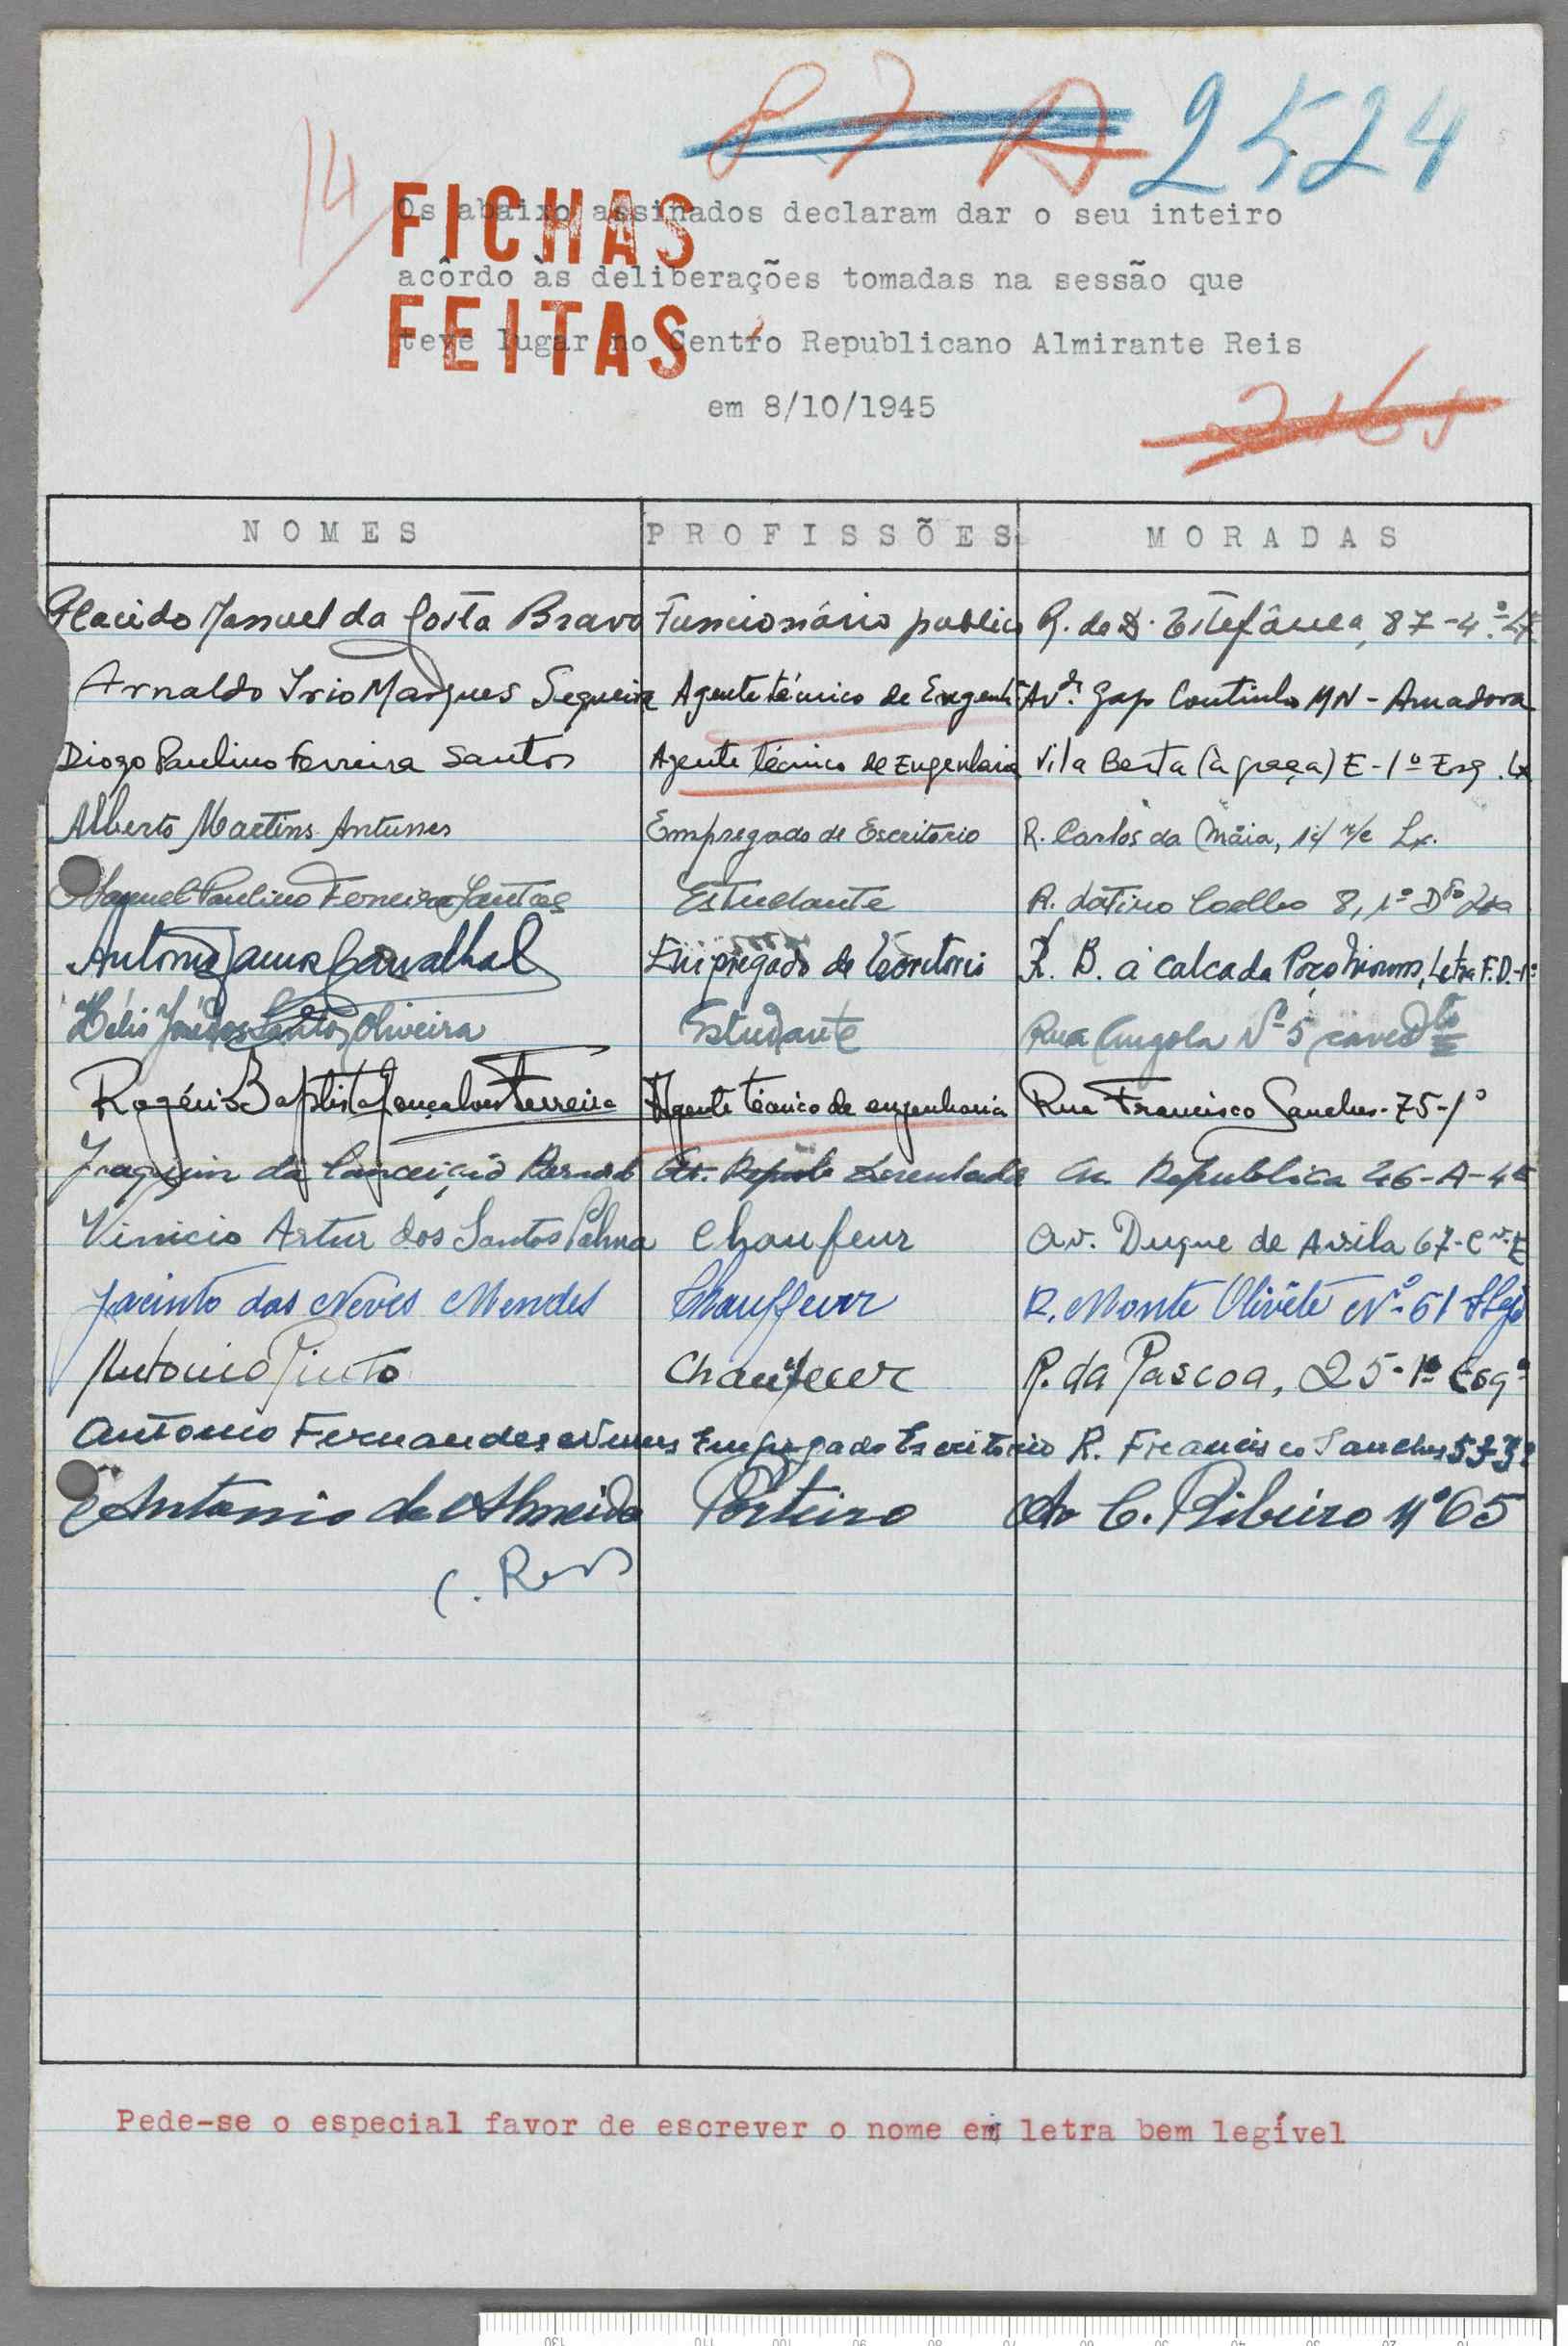 14
P 7 A 2524
FICHAS
Os abaixo assinados declaram dar o seu inteiro
acôrdo às deliberações tomadas na sessão que
FEITAS
teve lugar no Centro Republicano Almirante Reis
em 8/10/1945
NOMES PROFISSÕES MORADAS
Placido Manuel da Costa Bravo Funcionário publico R. de D. Estefânea, 87-4º
Arnaldo Irio Marques Sequeira Agente técnico de Av.da Gago Coutinho MN - Amadora
Diogo Paulino Ferreira Santos Agente técnico de Engenharia Vila Berta (à graça) E-1º Esq. Lx
Alberto Martins Antunes Empregado de Escritório R. Carlos da Máia, 14 r/c Lx.
Manuel Paulino Ferreira Santos Estudante R. Latino Coelho 8, 1º Dto
Antonio Carvalhal Empregado de R. B. à calcada Letra F.D.-1º
Hélio José dos Santos Oliveira Estudante Rua Angola Nº 5
Rogério Baptista Gonçalves Ferreira Agente técnico de engenharia Rua Francisco Sanches-75-1º
Joaquim da Conceição Av. Republica 46-A-4º
Vinicio Artur dos Santos Palma Chaufeur Av. Duque de Avila 67-
Jacinto das Neves Mendes Chauffeur R. Monte Olivête Nº 61
Antonio Pinto Chauffeur R. da Pascoa, 25-1º Esqº
Antonio Fernandes Nunes Empregado Escritorio R. Francisco Sanches
Antonio de Almeida Porteiro Av C. Ribeiro nº 65
Pede-se o especial favor de escrever o nome em letra bem legível